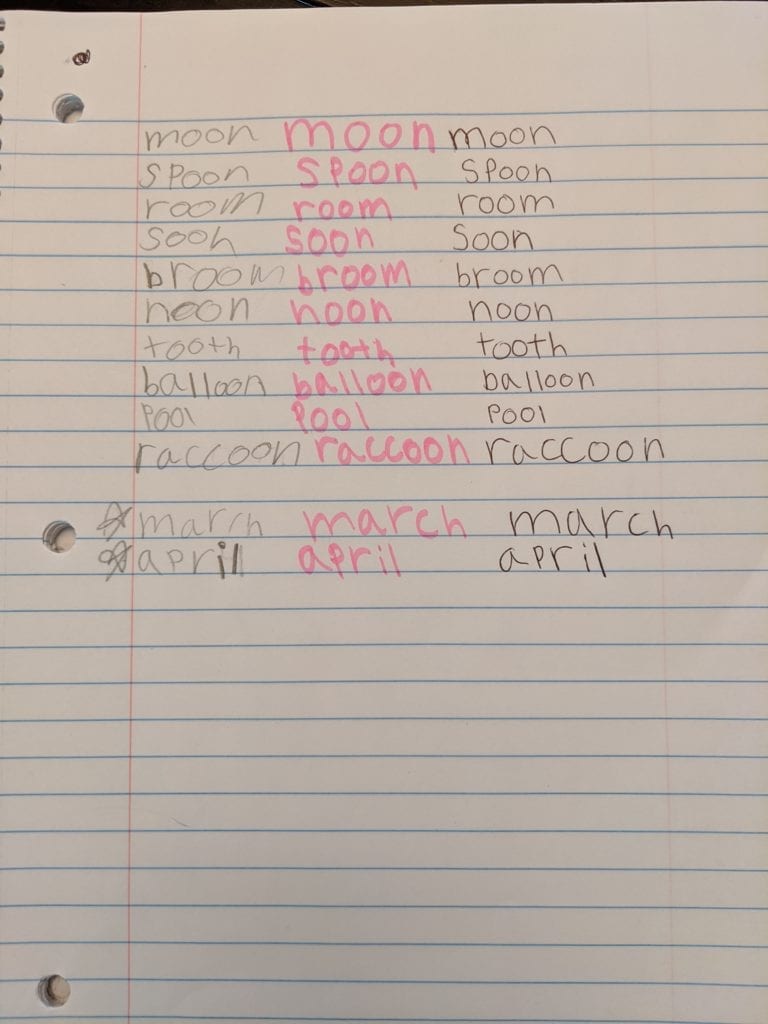 moon moon moon
spoon spoon spoon
room room room
soon soon soon
broom broom broom
noon noon noon
tooth tooth tooth
balloon balloon balloon
pool pool pool
raccoon raccoon raccoon
march march march
april april april